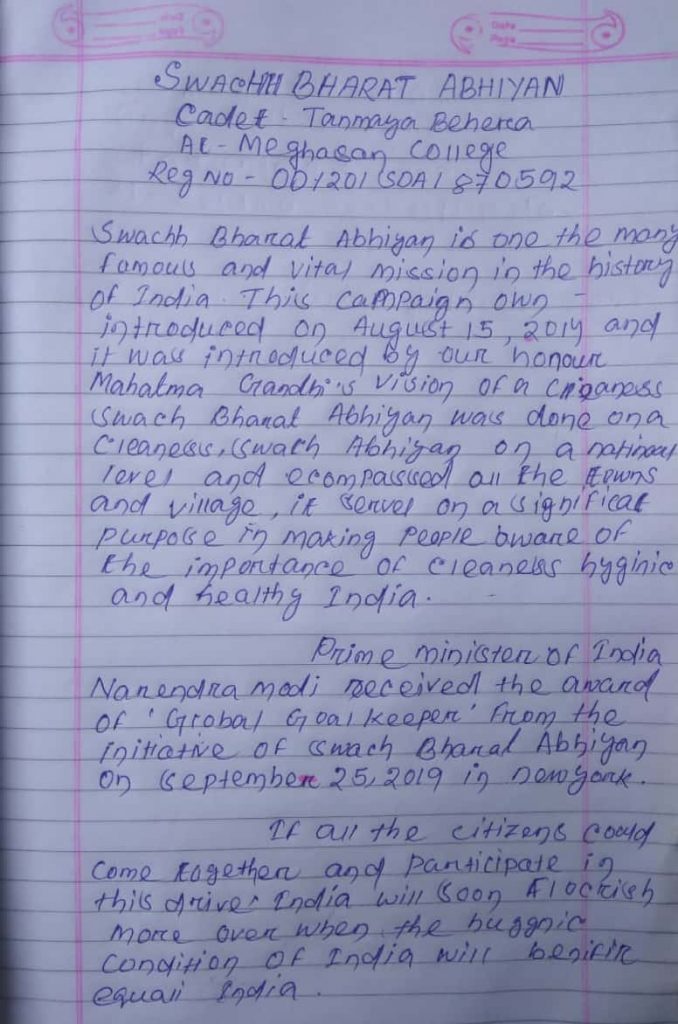 Date
Page
SWACHH BHARAT ABHIYAN
Cadet - Tanmaya Behera
At - Meghasan College
Reg No - OD/201/SDA/870592
Swachh Bharat Abhiyan is one the many
famous and vital mission in the history
of India. This campaign own -
introduced on August 15, 2014 and
it was introduced by our honour
Mahatma Grandhi's vision of a
Swach Bharat Abhiyan was done on a
Cleaness, Swach Abhiyan on a national
level and ecompassed all the towns
and village, it serves on a significat
purpose in making people aware of
the importance of cleaness hyginic
and healthy India.
Prime minister of India
Narendra modi received the award
of 'Grobal Goal keeper' from the
initiative of Swach Bharat Abhiyan
on September 25, 2019 in newyork.
If all the citizens could
come together and participate in
this drive India will soon
more over when the
condition of India will
equall India.